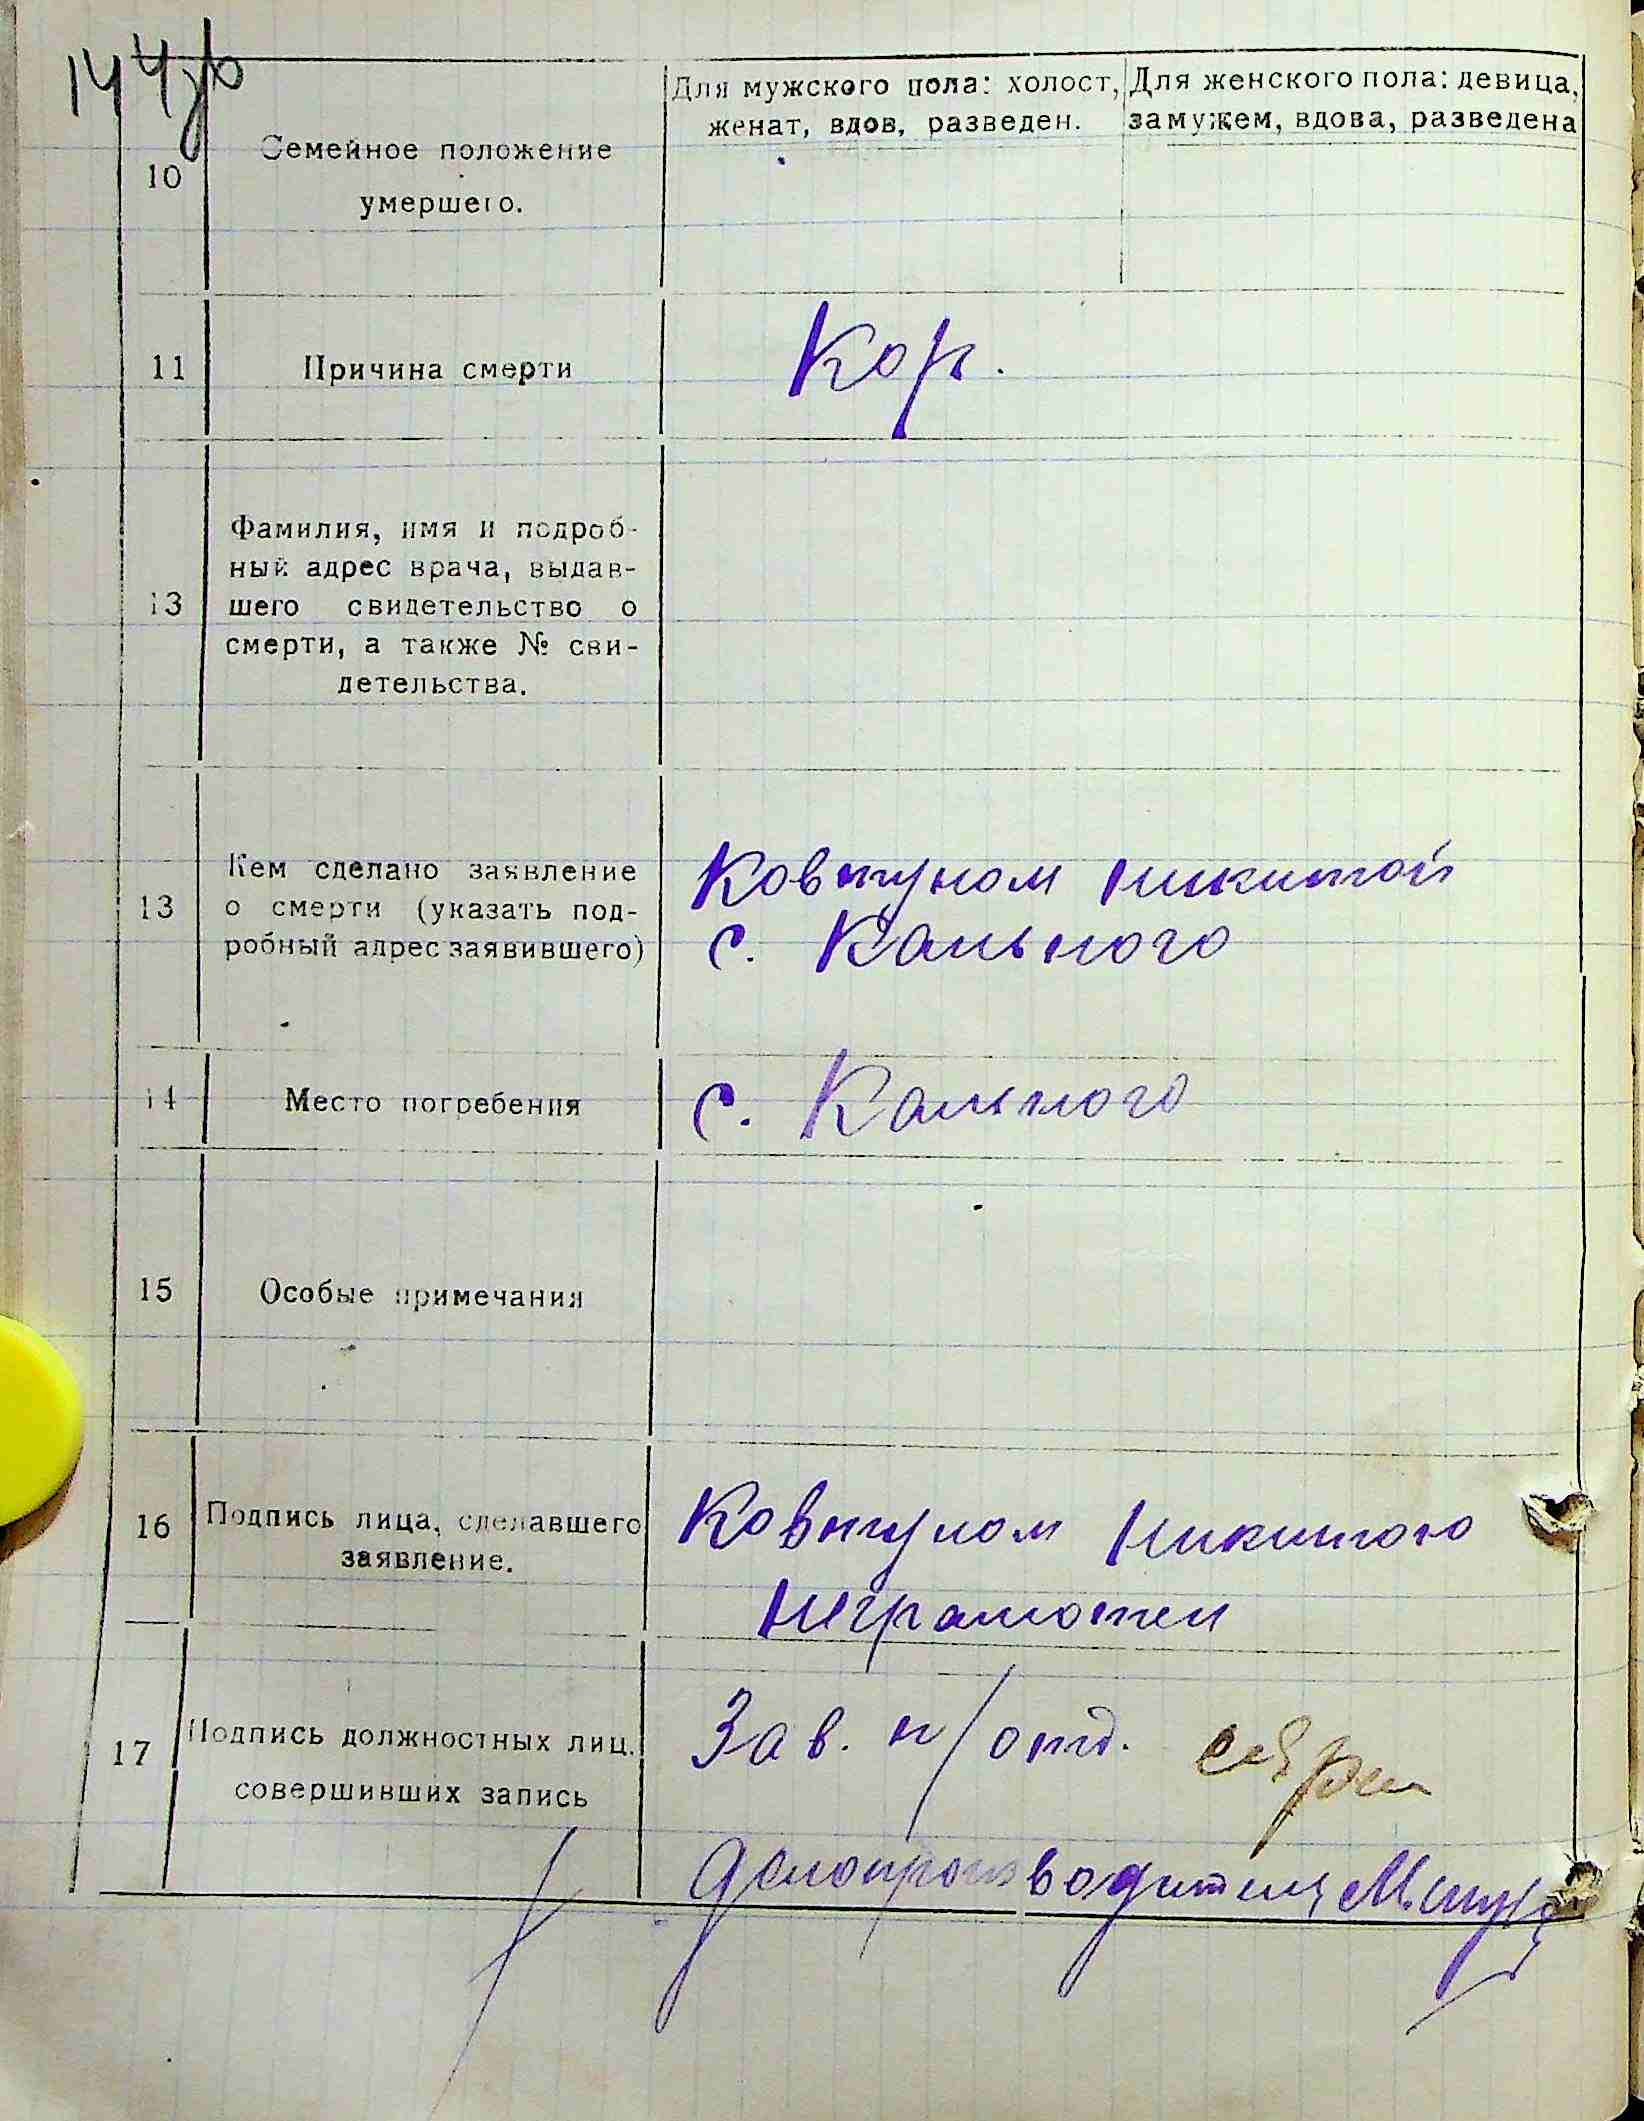 144
Для мужского пола: холост,
женат, вдов, разведен.
Для женского пола: девица,
замужем, вдова, разведена
10
Семейное положение
умершего.
11
Причина смерти
Кор.
13
Фамилия, имя и подроб-
ный адрес врача, выдав-
шего свидетельство о
смерти, а также № сви-
детельства.
13
Кем сделано заявление
о смерти (указать под-
робный адрес заявившего)
Ковтуном Никитой
с. Кального
14
Место погребения
с. Кального
15
Особые примечания
16
Подпись лица, сделавшего
заявление.
Ковтуном Никитою
неграмотен
17
Подпись должностных лиц.
совершивших запись
Зав. п/отд.
делопроизводитель